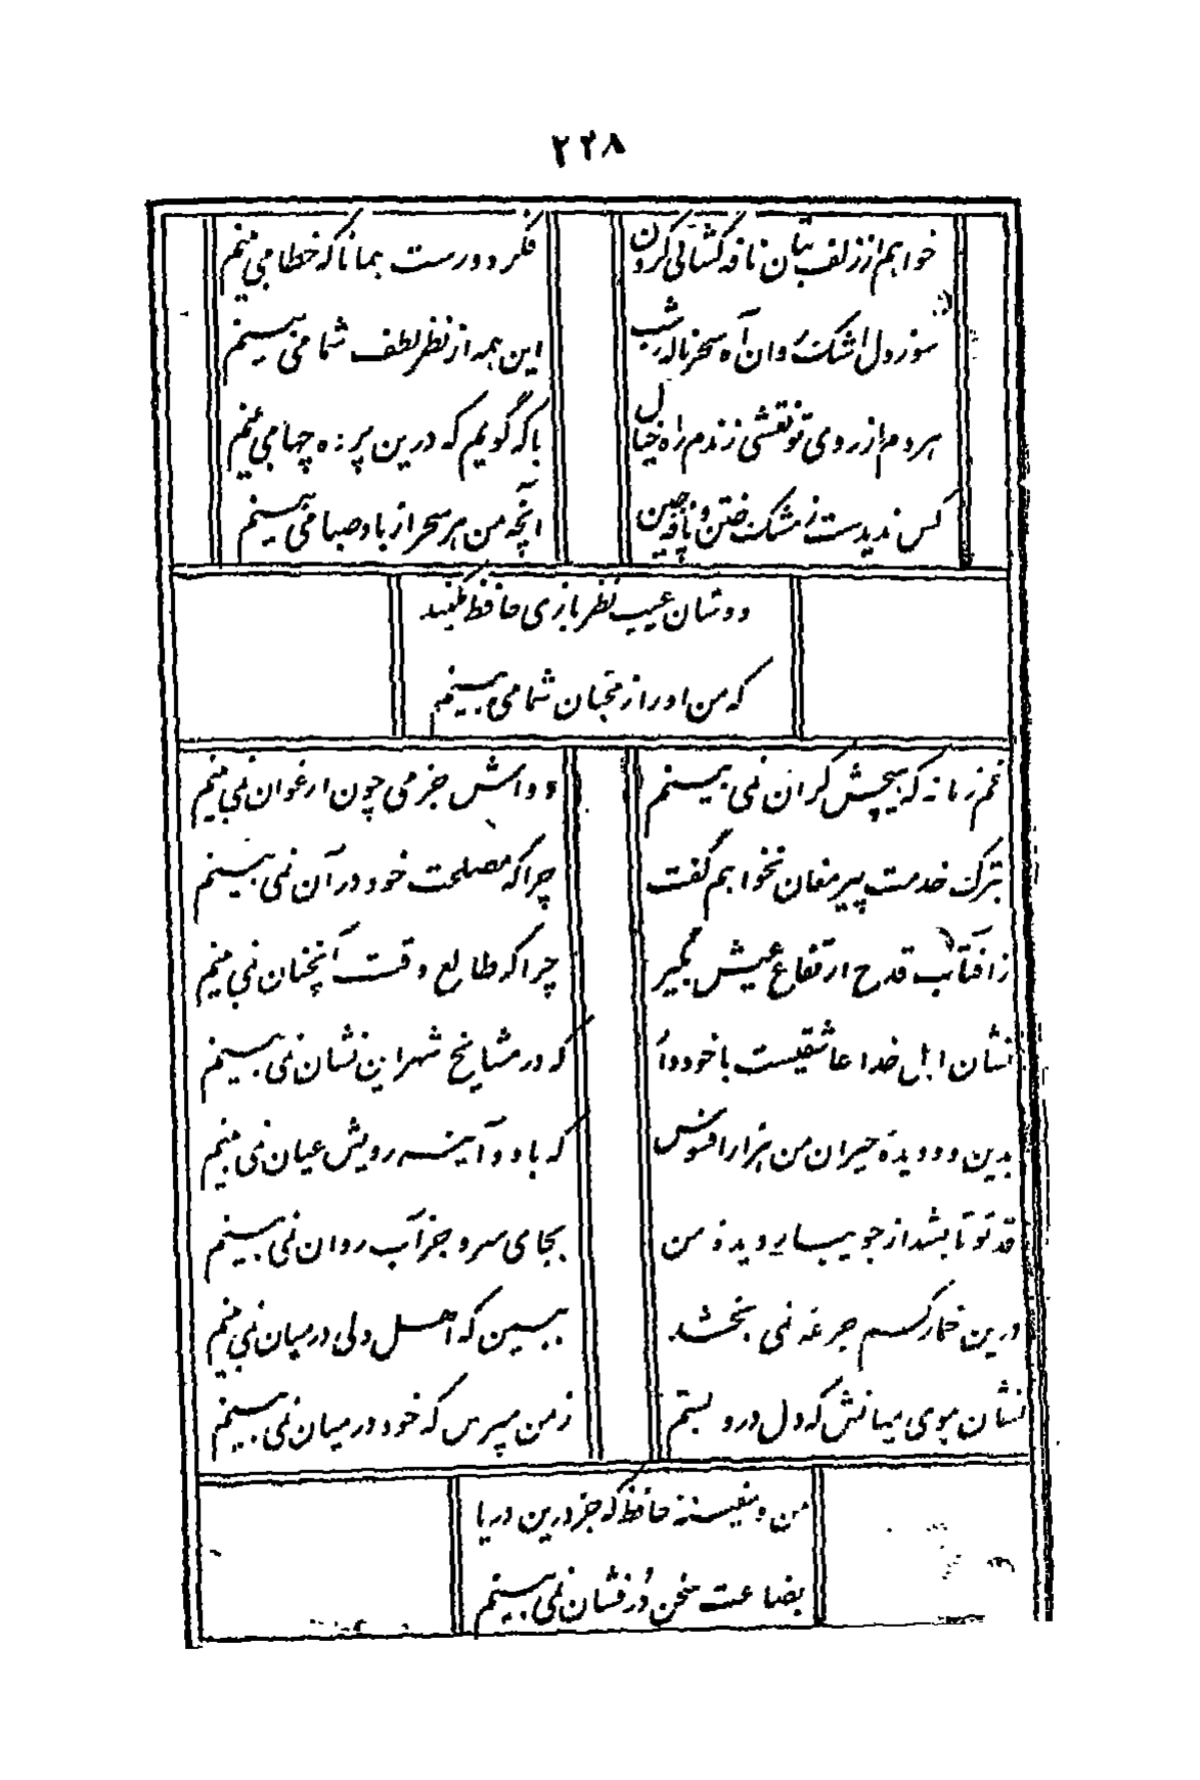 ۲۲۸
خواهم از زلف بتان نافه کشائی کردن
فکر دورست همانا که خطا می بینم
سوز دل اشک روان آه سحر ناله شب
این همه از نظر لطف شما می بینم
هردم از روی تو نقشی زندم راه خیال
با که گویم که درین پرده چها می بینم
کس ندیدست ز مشک ختن و نافه چین
آنچه من هر سحر از باد صبا می بینم
دوستان عیب نظر بازی حافظ مکنید
که من او را از محبان شما می بینم
غم زمانه که هیچش کران نمی بینم
دواش جز می چون ارغوان نمی بینم
بترک خدمت پیر مغان نخواهم گفت
چرا که مصلحت خود در آن نمی بینم
ز آفتاب قدح ارتفاع عیش بگیر
چرا که طالع وقت آنچنان نمی بینم
نشان اهل خدا عاشقیست با خود دار
که در مشایخ شهر این نشان نمی بینم
بدین دو دیدۀ حیران من هزار افسوس
که با دو آینه رویش عیان نمی بینم
قد تو تا بشد از جویبار دیدۀ من
بجای سرو جز آب روان نمی بینم
درین خمار کسم جرعه نمی بخشد
ببین که اهل دلی درمیان نمی بینم
نشان موی میانش که دل درو بستم
ز من مپرس که خود درمیان نمی بینم
من و سفینه حافظ که جز درین دریا
بضاعت سخن دُر فشان نمی بینم